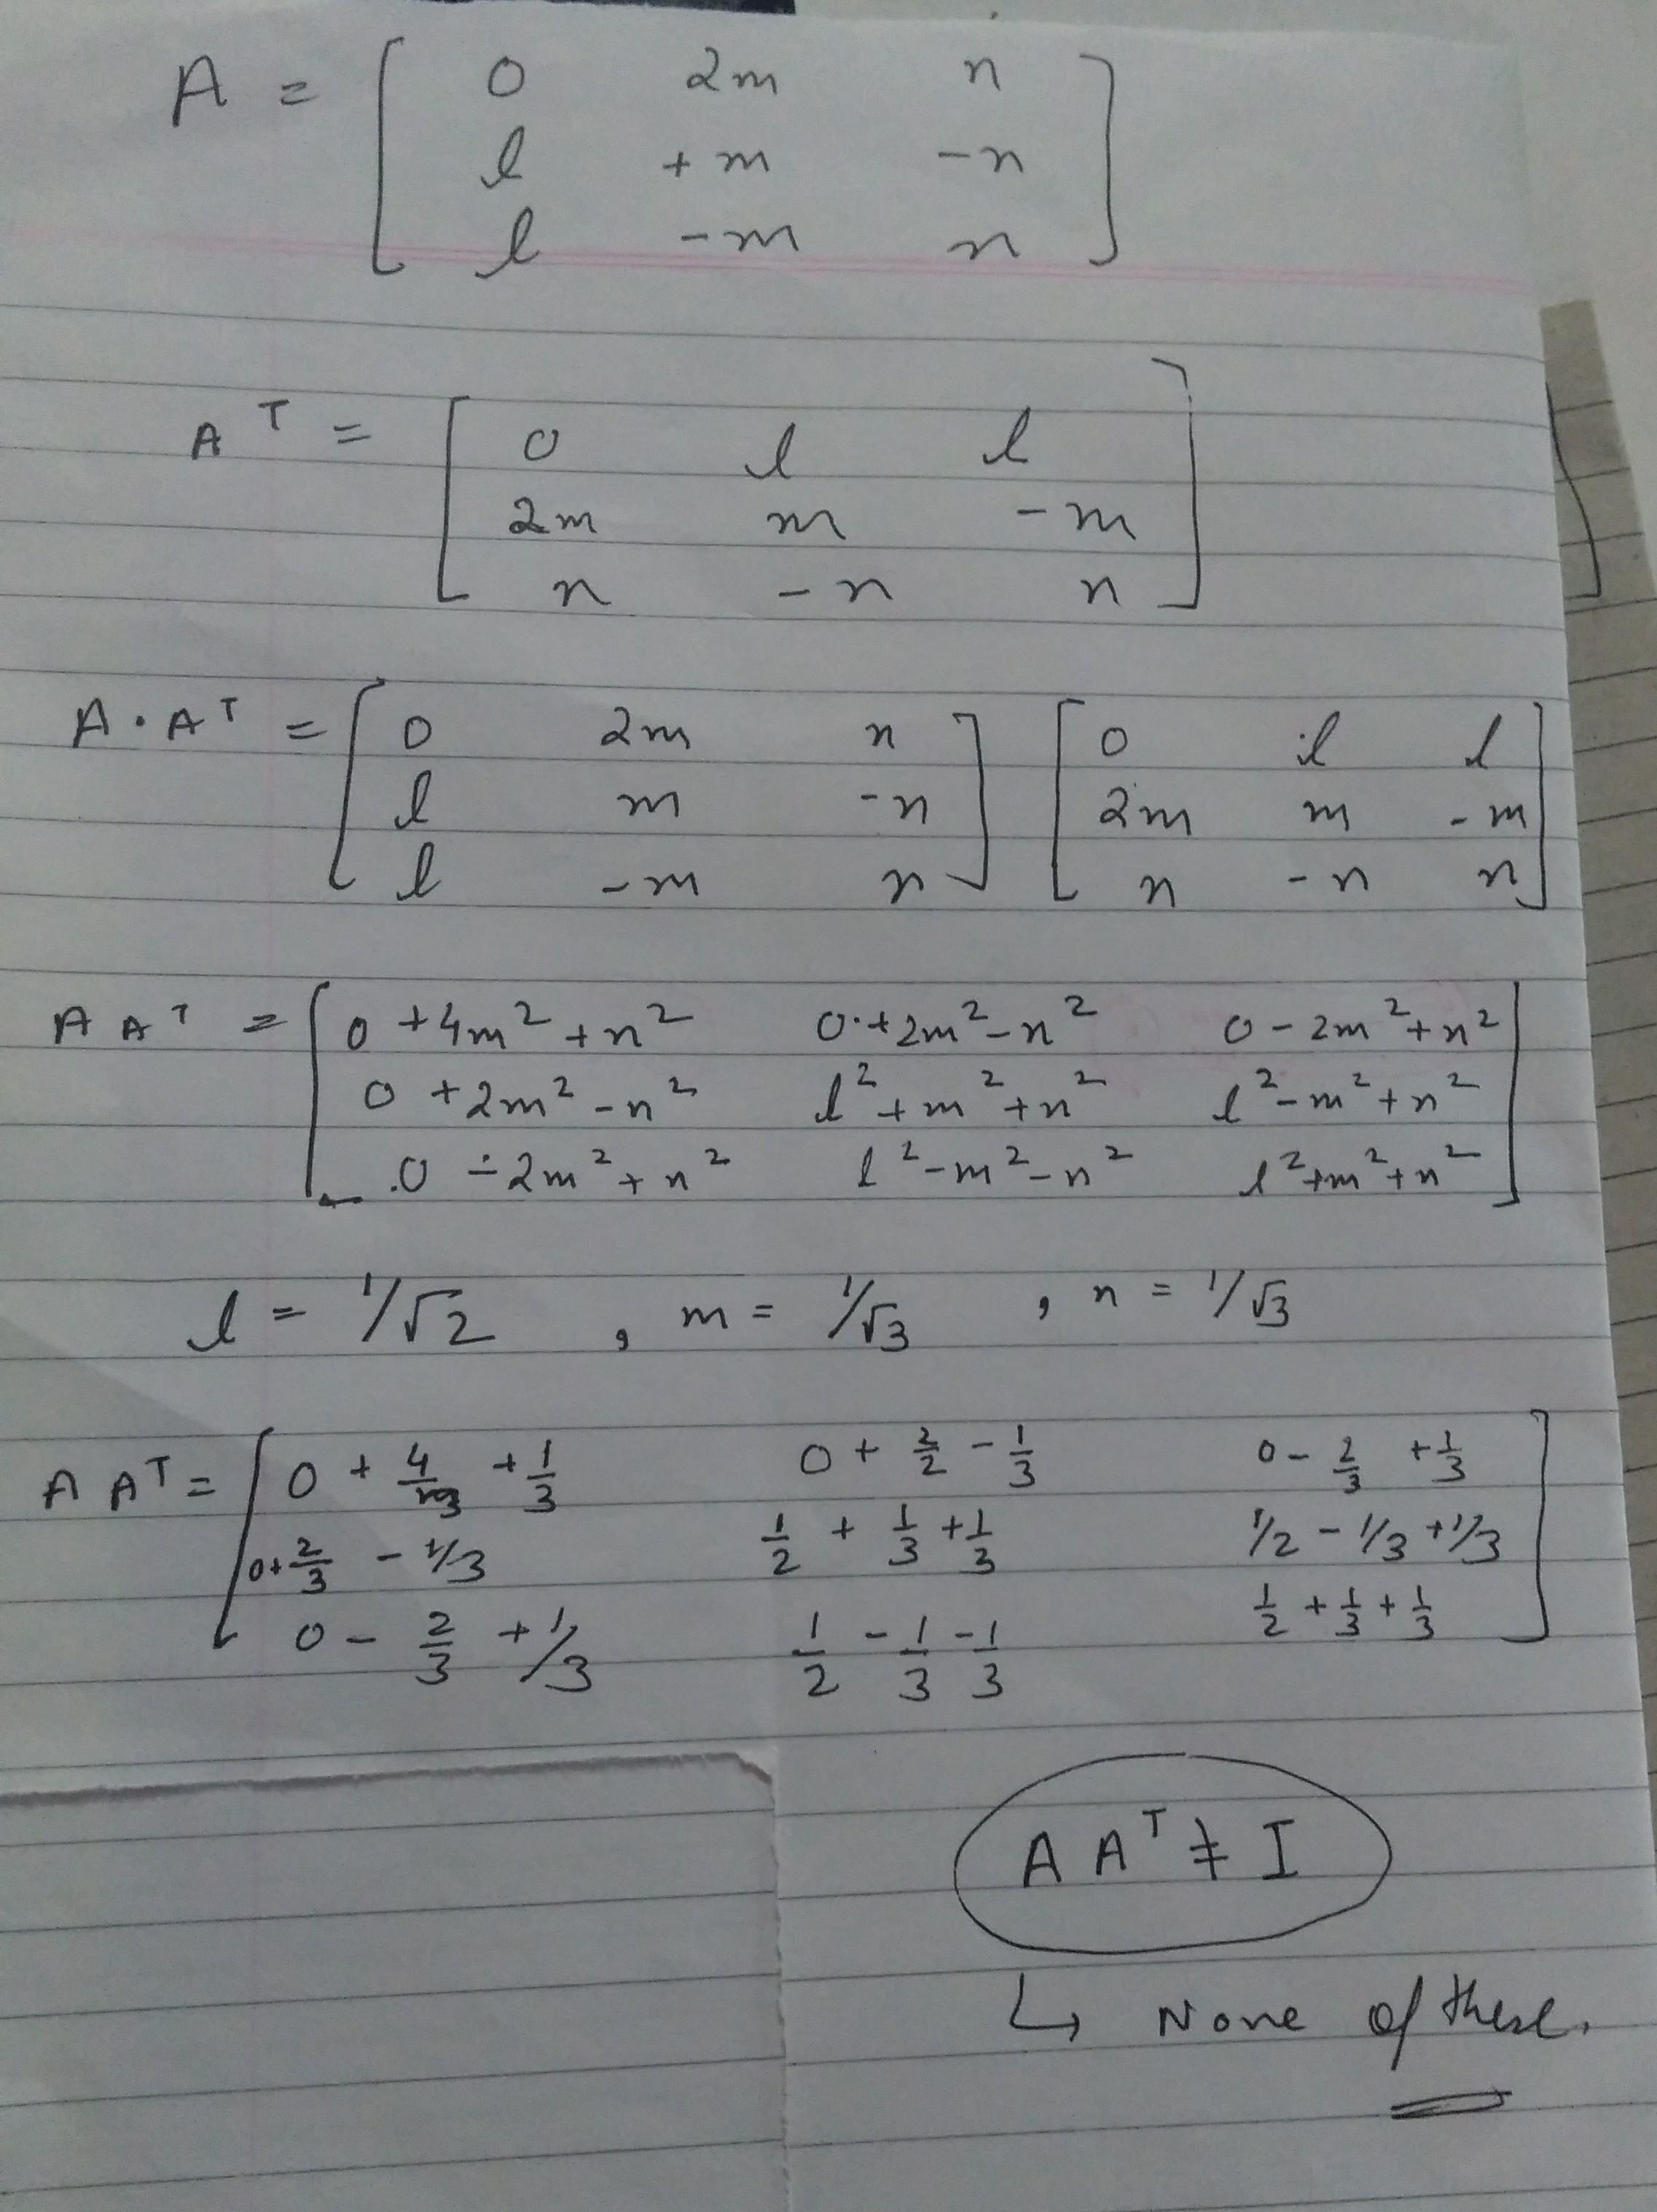 A = [ 0 2m n
l +m -n
l -m n ]
A^T = [ 0 l l
2m m -m
n -n n ]
A · A^T = [ 0 2m n ] [ 0 l l ]
l m -n 2m m -m
l -m n n -n n
A A^T = [ 0 + 4m² + n² 0 + 2m² - n² 0 - 2m² + n² ]
0 + 2m² - n² l² + m² + n² l² - m² + n²
0 - 2m² + n² l² - m² - n² l² + m² + n²
l = 1/√2 , m = 1/√3 , n = 1/√3
A A^T = [ 0 + 4/3 + 1/3 0 + 2/2 - 1/3 0 - 2/3 + 1/3 ]
0 + 2/3 - 1/3 1/2 + 1/3 + 1/3 1/2 - 1/3 + 1/3
0 - 2/3 + 1/3 1/2 - 1/3 - 1/3 1/2 + 1/3 + 1/3
A A^T ≠ I
↳ None of these.